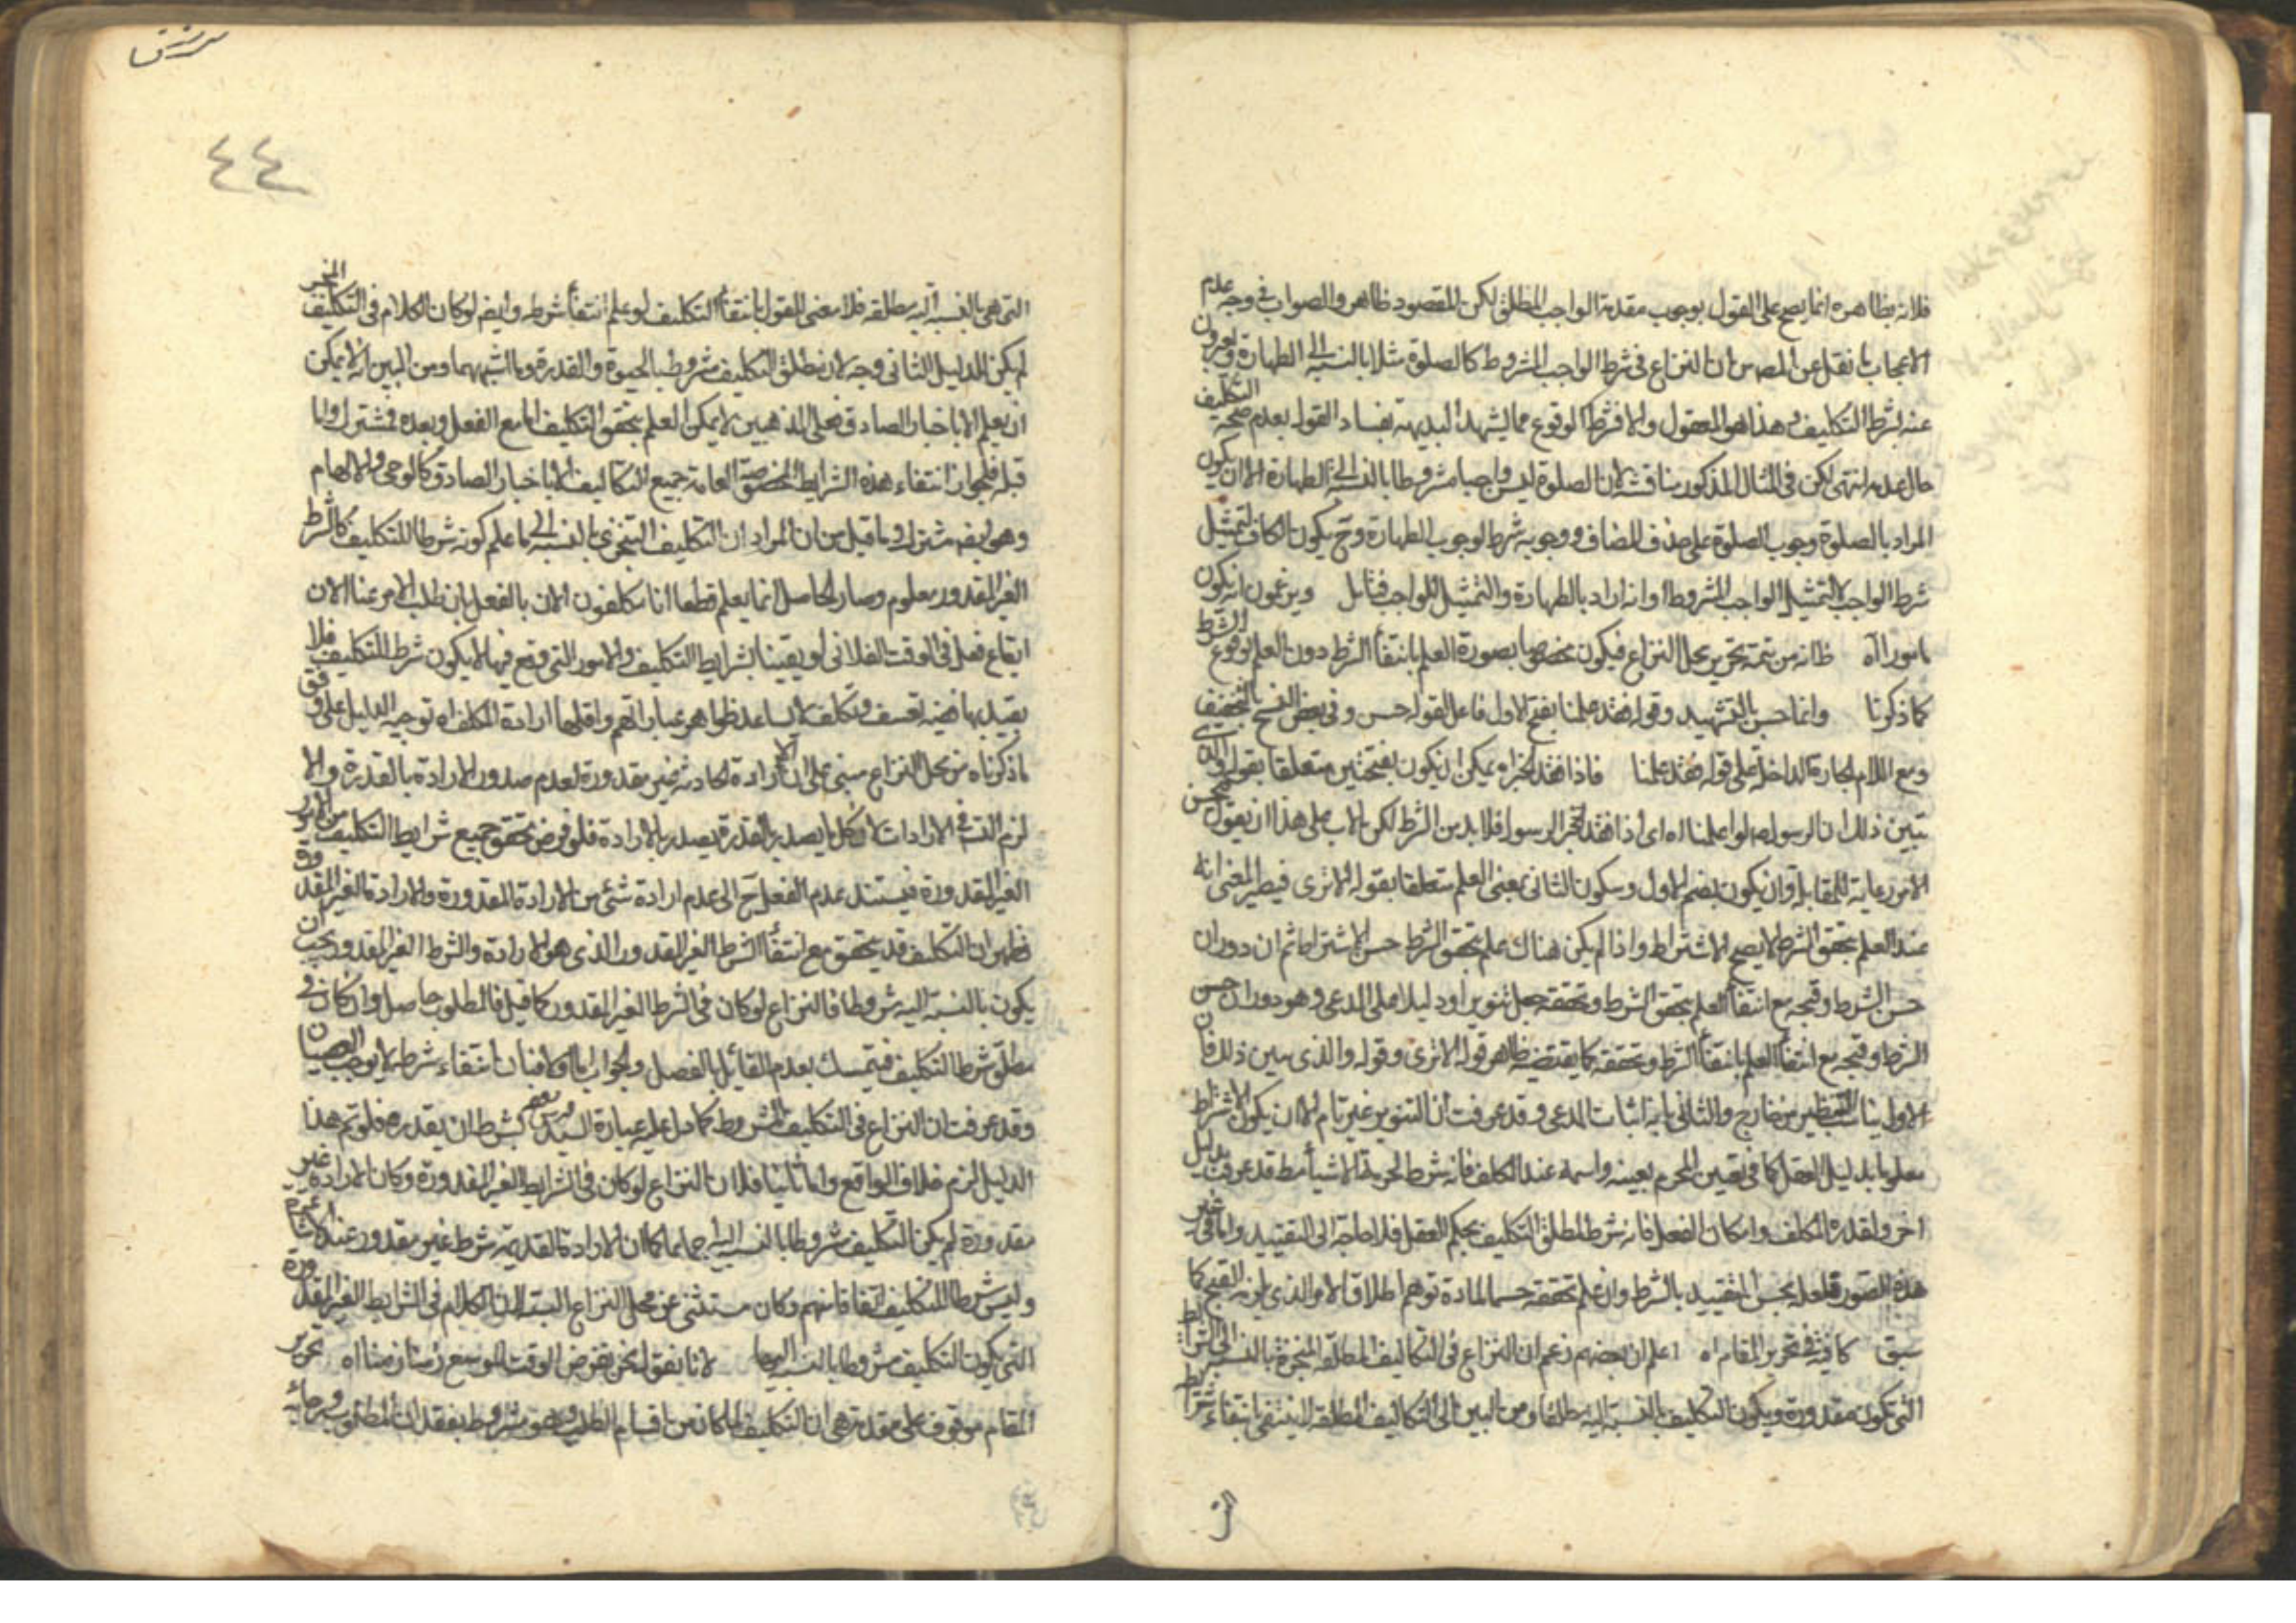 فلانه بظاهره انما يصح على القول بوجوب مقدمة الواجب المطلق لكن المقصود ظاهر والصواب في وجه عدم
الاعجاب ما نقل عن المصه من ان النزاع في شرط الواجب المشروط كالصلوة مثلا بالنسبه الى الطهارة
عنه بشرط التكليف وهذا هو المعقول والا فشرط الوقوع مما يشهد البديهه بفساد القول بعدم صحة التكليف
حال عدمه انتهى لكن في المثال المذكور مناقشة لان الصلوة ليس واجبا مشروطا بالنسبه الى الطهارة الا ان يكون
المراد بالصلوة وجوب الصلوة على حذف المضاف ووجوبه شرط لوجوب الطهارة وح يكون الكاف لتمثيل
شرط الواجب لا لتمثيل الواجب المشروط او انه اراد بالطهارة والتمثيل للواجب فتامل ويزعمون انه يكون
مامورا اه ظانه من تتمة تحرير محل النزاع فيكون مخصوصا بصورة العلم بانتفأ الشرط دون العلم بوقوع الشرط
كما ذكرنا وانما حسن بالتشهيد وقوله فقد علمنا بفتح الاول فاعل لقوله حسن وفي بعض النسخ بالتخفيف
ومع اللام الجارة الداخلة على قوله فقد علمنا فاذا فقد الخبر اه يمكن ان يكون بفتحتين متعلقا بقوله
تبين ذلك ان الرسول صه لو اعلمنا اه اى اذا فقد خبر الرسول فلا بد من الشرط لكن على هذا ان يقول
الامور رعاية للمقابلة وان يكون بضم الاول وسكون الثاني بمعنى العلم متعلقا بقوله الا ترى فيصير المعنى انه
عند العلم بتحقق الشرط لا يصح الاشتراط واذا لم يكن هناك علم بتحقق الشرط حسن الاشتراط ثم ان دوران
حسن الشرط وقبحه مع انتفأ العلم بتحقق الشرط وتحققه جعل تنويرا ودليلا على المدعى وهو دوران حسن
الشرط وقبحه مع انتفأ العلم بانتفأ الشرط وتحققه كما يقتضيه ظاهر قوله الا ترى وقوله والذى يبين ذلك فان
الاول يناسب التنظير من خارج والثاني يابه اثبات المدعى وقد عرفت ان التنوير غير تام الا ان يكون الاشتراط
معلوما بدليل العقل كما في تعيين المحرم بعينه واسمه عند المكلف فانه شرط لحرمة الاشيأ مط قد عرفت بدليل
اخر ولقدرة المكلف وامكان الفعل فانه شرط لمطلق التكليف بحكم العقل فلا حاجة الى التقييد واما في غير
هذه الصور فلعله يحسن التقييد بالشرط وان علم تحققه حسما لمادة توهم اطلاق الامر الذي يلزمه القبح كما
سبق كما في تحرير المقام اه اعلم ان بعضهم زعم ان النزاع في التكاليف المطلقه المنجزة بالنسبة الى الشرايط
التي تكون مقدورة ويكون التكليف بالنسبة اليه مطلقا ومن البين ان التكاليف المطلقه لا ينتفى بانتفاء شرايط
التى
سرزق
٤٤
التي هي بالنسبة اليه مطلقه فلا معنى للقول بانتفأ التكليف لو علم انتفأ شرطه وايضه لو كان الكلام في التكليف المنجز
لم يكن للدليل الثاني وجه لان مطلق التكليف مشروط بالحيوة والقدرة وما اشبههما ومن البين انه لا يمكن
ان يعلم الا باخبار الصادق فعلى المذهبين لا يمكن العلم بتحقق التكليف اما مع الفعل وبعده فمشترك واما
قبله فلجواز انتفاء هذه الشرايط العامة جميع التكاليف الا باخبار الصادق كالوحى والالهام
وهو ايضه مشترك وما قيل من ان المراد ان التكليف التنجزى بالنسبه الى ما علم كونه شرطا للتكليف كالشرط
الغير المقدور معلوم وصار الحاصل انما يعلم قطعا انا مكلفون الان بالفعل بان طلب الامر عنا الان
ايقاع فعل في الوقت الفلانى لو بقينا بشرايط التكليف والامور التي وقع فيها لا يكون شرط للتكليف فلا
يقيد بها ففيه تعسف وتكلف لا يساعد ظواهر عباراتهم واقلها ارادة المكلف اه توجيه الدليل على وفق
ما ذكرناه من محل النزاع مبنى على ان الارادة الحادثة غير مقدورة لعدم صدور الارادة بالقدرة والا
لزم التس في الارادات لان كل ما يصدر بالقدرة يصدر بالارادة فلو فرض تحقق جميع شرايط التكليف من الامور
الغير المقدورة فيستند عدم الفعل ح الى عدم ارادة شئ من الارادة المقدورة والارادة الغير المقدورة
فظهر ان التكليف قد يتحقق مع انتفأ الشرط الغير المقدور الذي هو الارادة والشرط الغير المقدور يجب ان
يكون بالنسبة اليه مشروطا فالنزاع لو كان في الشرط الغير المقدور كما قيل فالمطلوب حاصل وان كان في
مطلق شرط التكليف فيتمسك بعدم القائل بالفصل والجواب اما اولا فبان انتفاء شرط لا يوجب العصيان
وقد عرفت ان النزاع في التكليف المشروط كما دل عليه عبارة السيد بشرط ان يقدره فلو تم هذا
الدليل لزم خلاف الواقع واما ثانيا فلان النزاع لو كان في الشرايط الغير المقدورة وكان الارادة غير
مقدورة لم يكن التكليف مشروطا بالنسبه اليها اجماعا كما ان الارادة القديمة شرط غير مقدور عند الاشاعره
وليس شرطا للتكليف اتفاقا منهم وكان مستثنى عن محل النزاع البته لان الكلام في الشرايط الغير المقدورة
التي يكون التكليف مشروطا بالنسبه اليها لانا نقول نحن نفرض الوقت الموسع زمنا زمنا اه تحرير
المقام موقوف على مقدمة هي ان التكليف لما كان من اقسام الطلب وهو مشروط بفقدان المطلوب